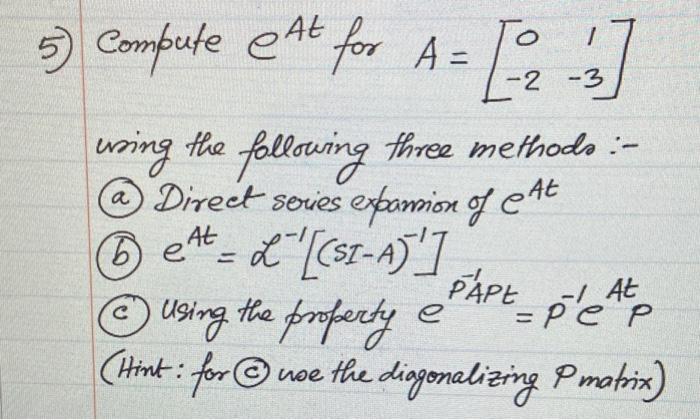 5) Compute e^At for A = [0 1
-2 -3]
using the following three methods :-
(a) Direct series expansion of e^At
(b) e^At = ℒ^-1[(SI-A)^-1]
(c) Using the property e^P^-1APt = P^-1 e^At P
(Hint: for (c) use the diagonalizing P matrix)